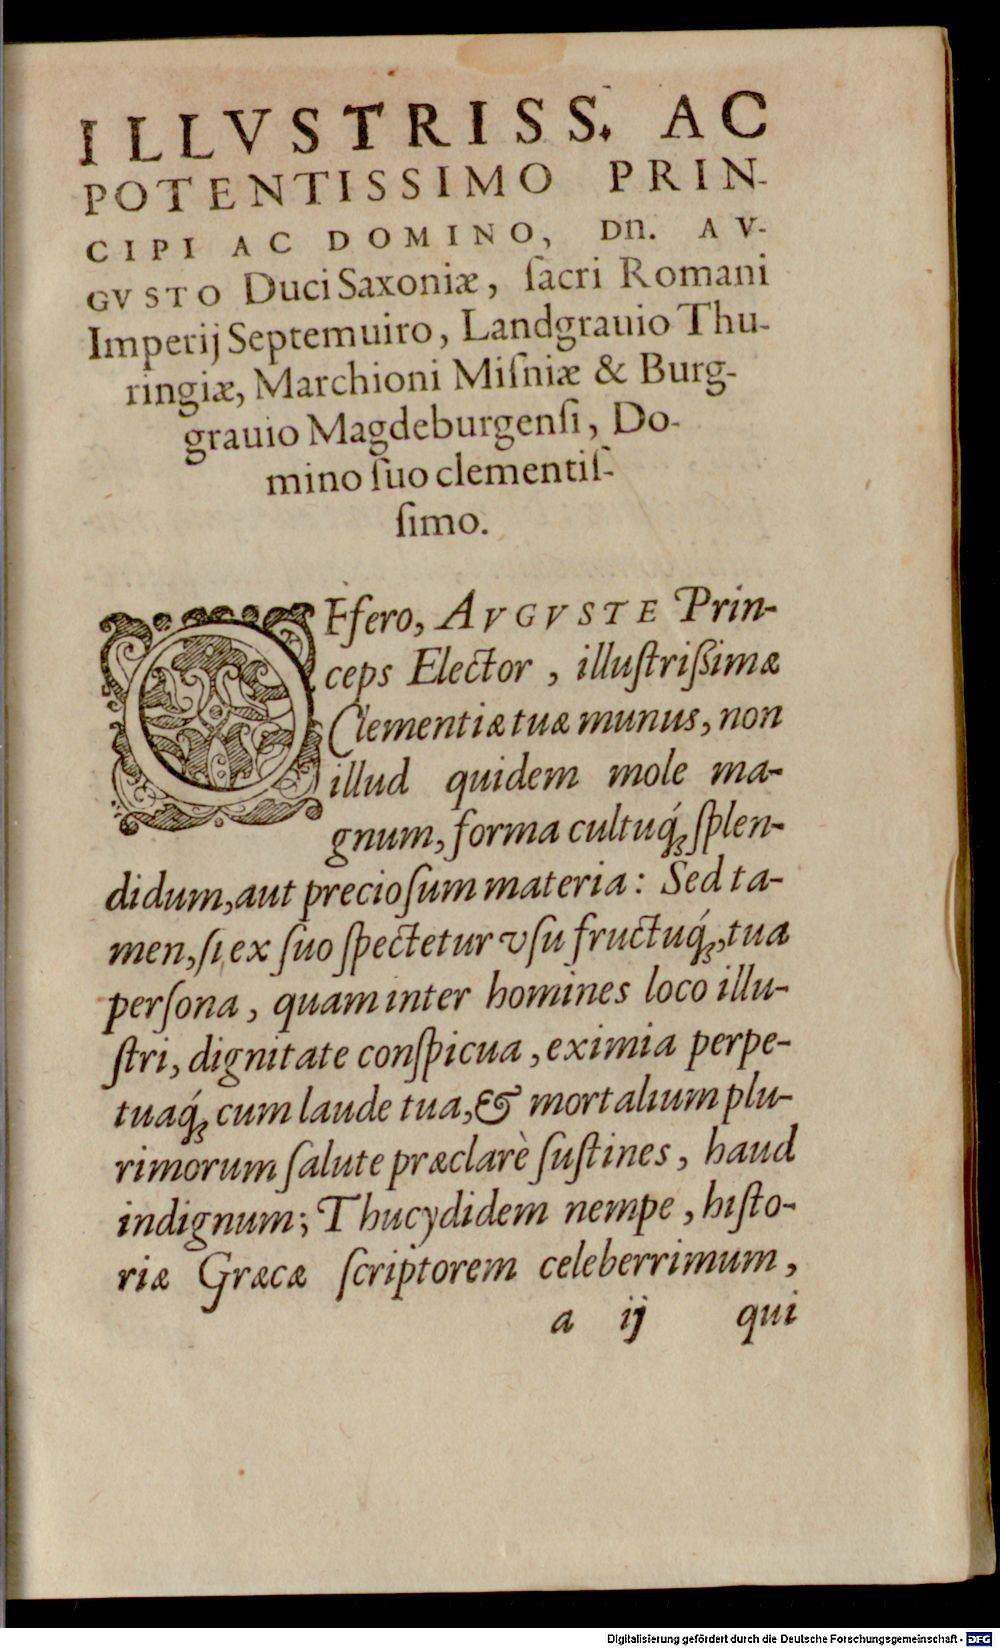 ILLVSTRISS. AC
POTENTISSIMO PRIN-
CIPI AC DOMINO, Dn. AV-
GVSTO Duci Saxoniæ, ſacri Romani
Imperij Septemuiro, Landgrauio Thu-
ringiæ, Marchioni Miſniæ & Burg-
grauio Magdeburgenſi, Do-
mino ſuo clementiſ-
ſimo.
OFfero, AVGVSTE Prin-
ceps Elector, illuſtrißimæ
Clementiæ tuæ munus, non
illud quidem mole ma-
gnum, forma cultuq́ꝫ ſplen-
didum, aut precioſum materia: Sed ta-
men, ſi ex ſuo ſpectetur vſu fructuq́ꝫ, tua
perſona, quam inter homines loco illu-
ſtri, dignitate conſpicua, eximia perpe-
tuaq́ꝫ cum laude tua, & mortalium plu-
rimorum ſalute præclarè ſuſtines, haud
indignum; Thucydidem nempe, hiſto-
riæ Græcæ ſcriptorem celeberrimum,
a ij qui
Digitalisierung gefördert durch die Deutsche Forschungsgemeinschaft - DFG